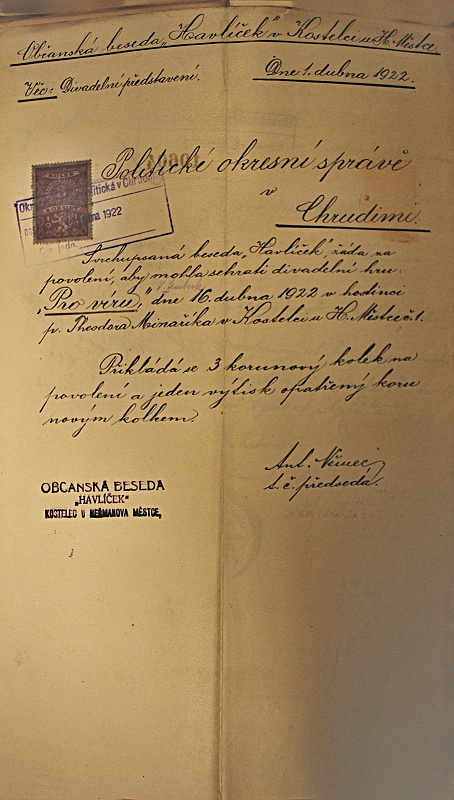 Občanská beseda „Havlíček" v Kostelci u H. Městce.
Věc: Divadelní představení.
Dne 1. dubna 1922.
Politické okresní správě
v
Chrudimi.
Svrchupsaná beseda „Havlíček", žádá za
povolení, aby mohla sehrati divadelní hru:
„Pro víru," dne 16. dubna 1922 v hostinci
p. Theodora Minaříka v Kostelci u H. Městce č. 1.
Přikládá se 3 korunový kolek na
povolení a jeden výtisk opatřený koru
novým kolkem.
Ant. Němec,
t. č. předseda.
OBČANSKÁ BESEDA
„HAVLÍČEK"
KOSTELEC U HEŘMANOVA MĚSTCE,